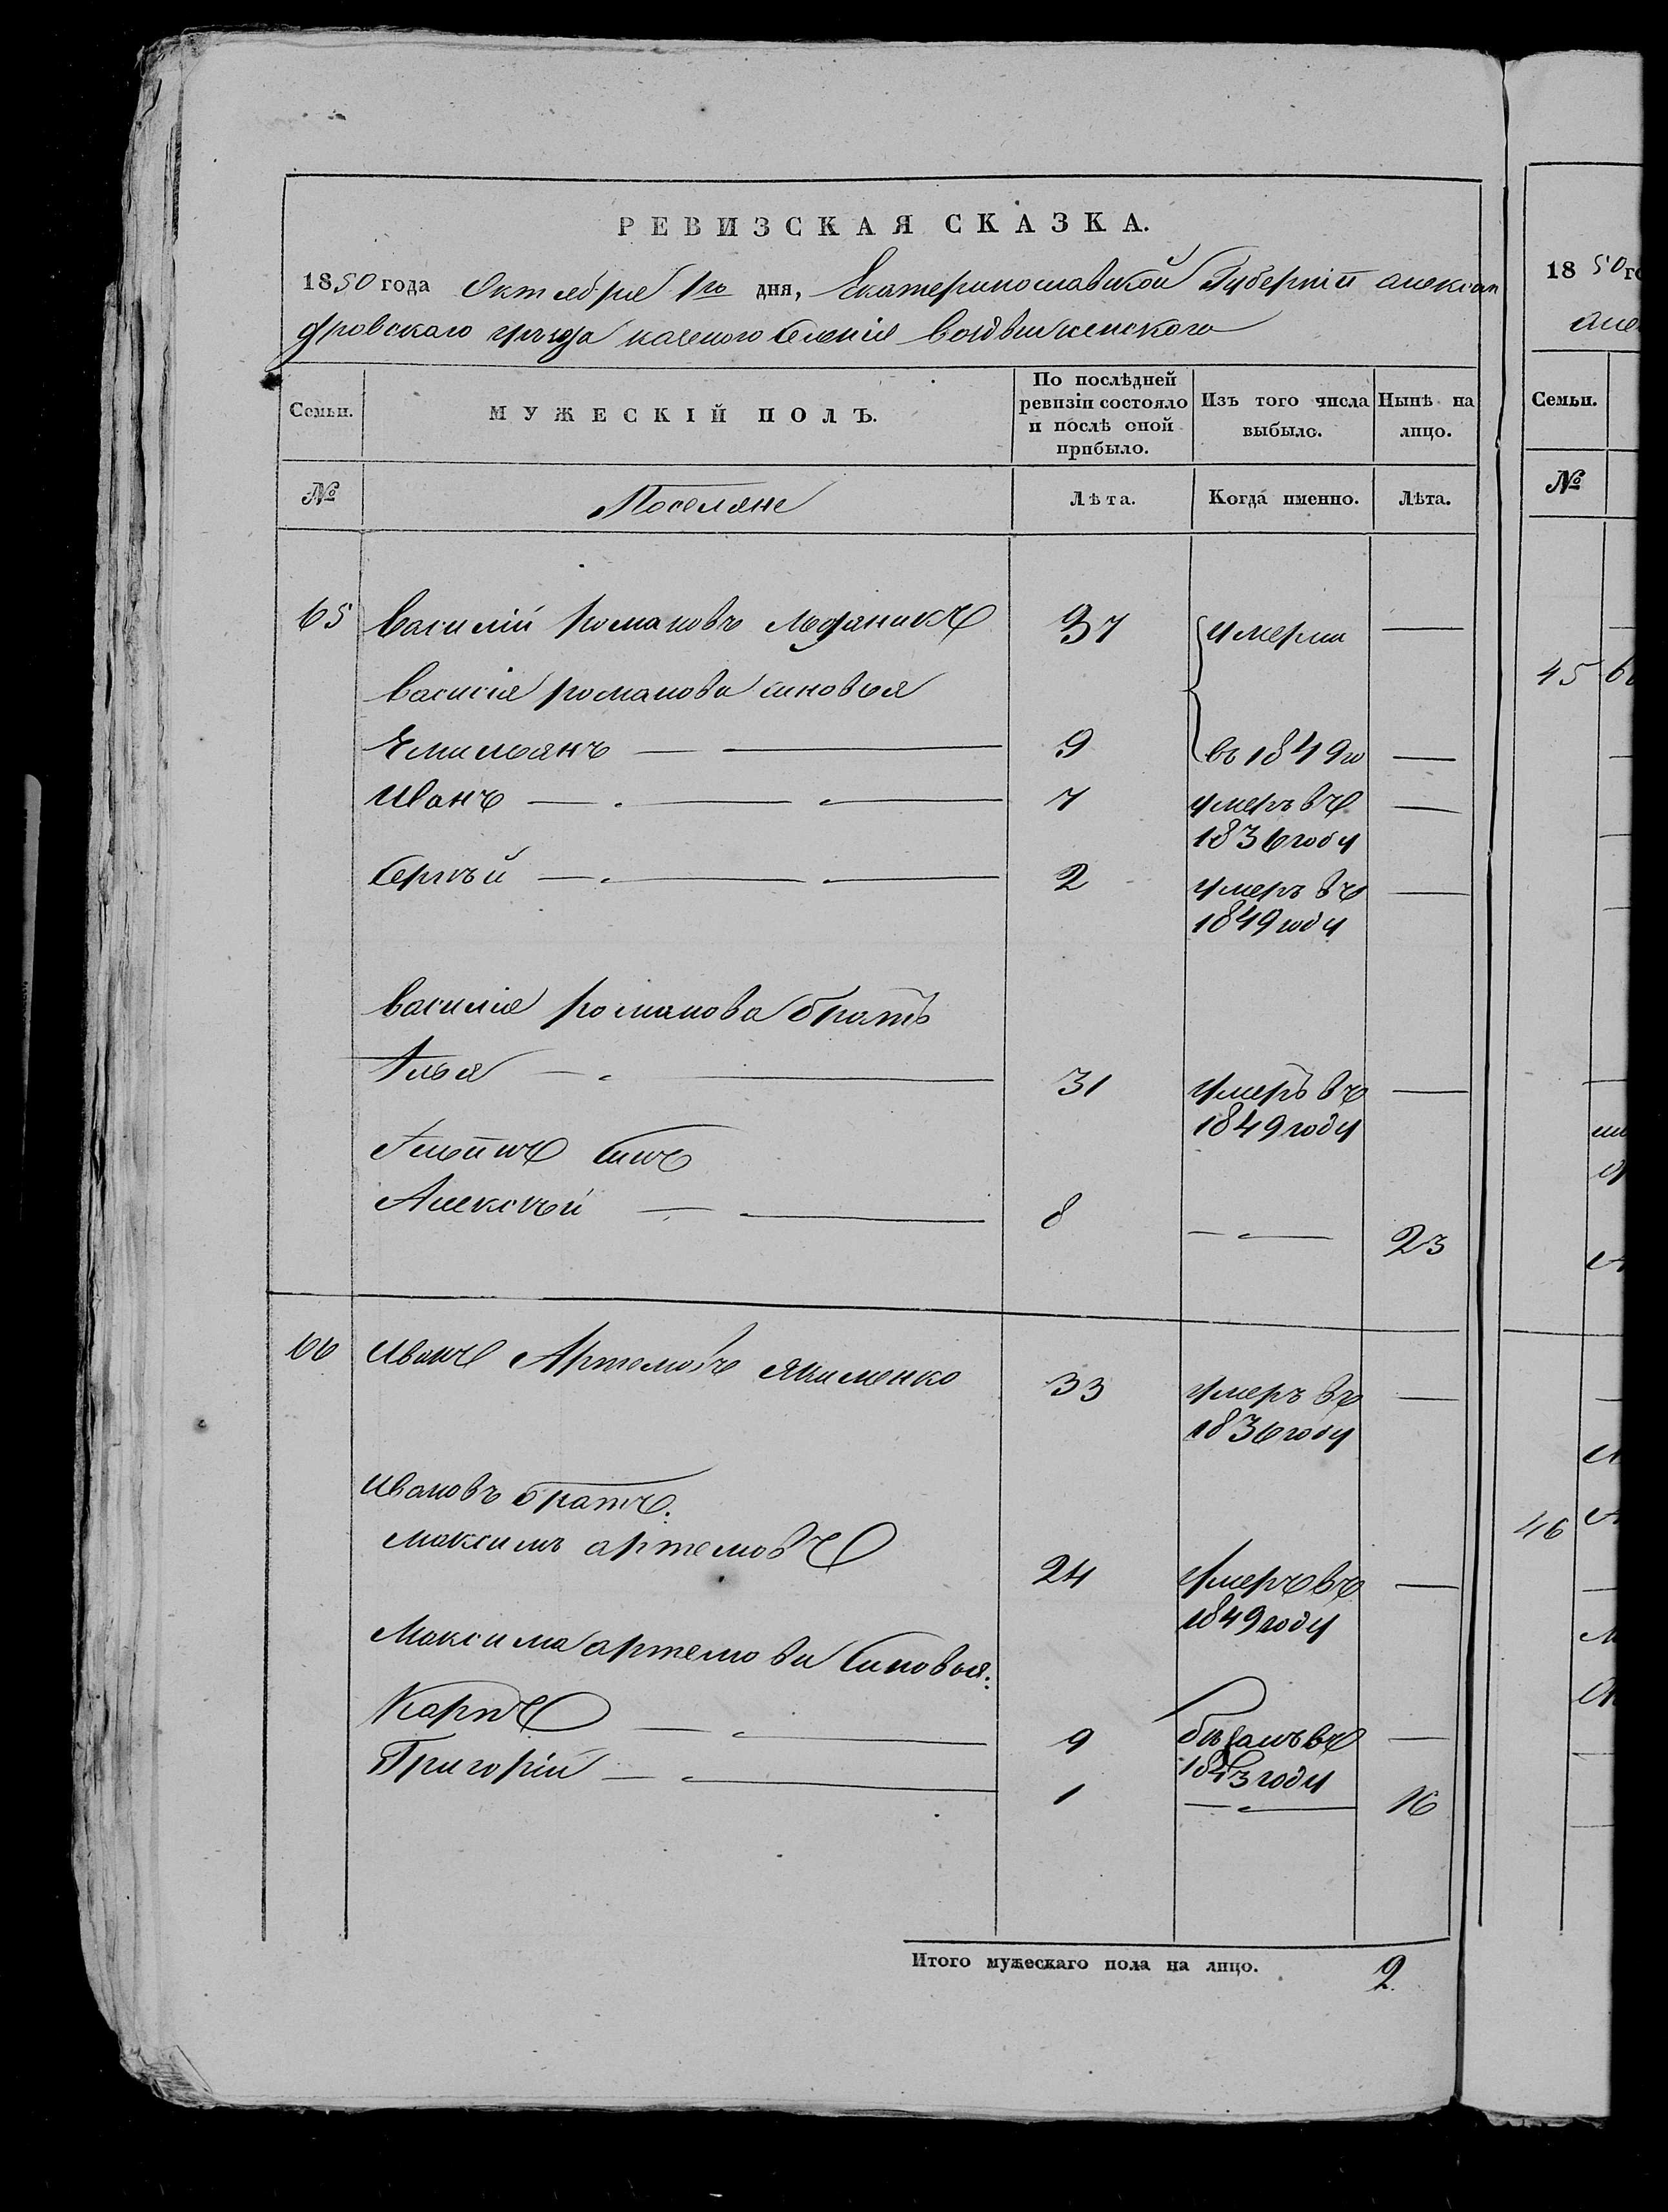 РЕВИЗСКАЯ СКАЗКА.
1850 года Октября 1го дня, Екатеринославской Губерніи алексан
дровскаго уѣзда казеного Селенія воздвиженского
Семьи.
МУЖЕСКІЙ ПОЛЪ.
По послѣдней
ревизіи состояло
и послѣ оной
прибыло.
Изъ того числа
выбыло.
Нынѣ на
лицо.
№
Поселяне
Лѣта.
Когда именно.
Лѣта.
65 Василій романовъ 37 умерли —
василія романова синовья
Емильянъ — 9 въ 1849го —
Иванъ — 7 умеръ въ —
1836 году
Сергѣй — 2 умеръ въ —
1849 году
василія романова братъ
Илья — 31 умеръ въ —
1849 году
Ильинъ синъ
Алексѣй — 8 — 23
66 Иванъ Артемовъ якименко 33 умеръ въ —
1836 году
Ивановъ братъ.
максимъ артемовъ 24 умеръ въ —
1849 году
Максима артемова Синовья:
Карпъ — 9 бѣжалъ въ —
1843 году
Григорій — 1 — 16
Итого мужескаго пола на лицо. 2
18 50 го
але
Семьи.
№
45
46